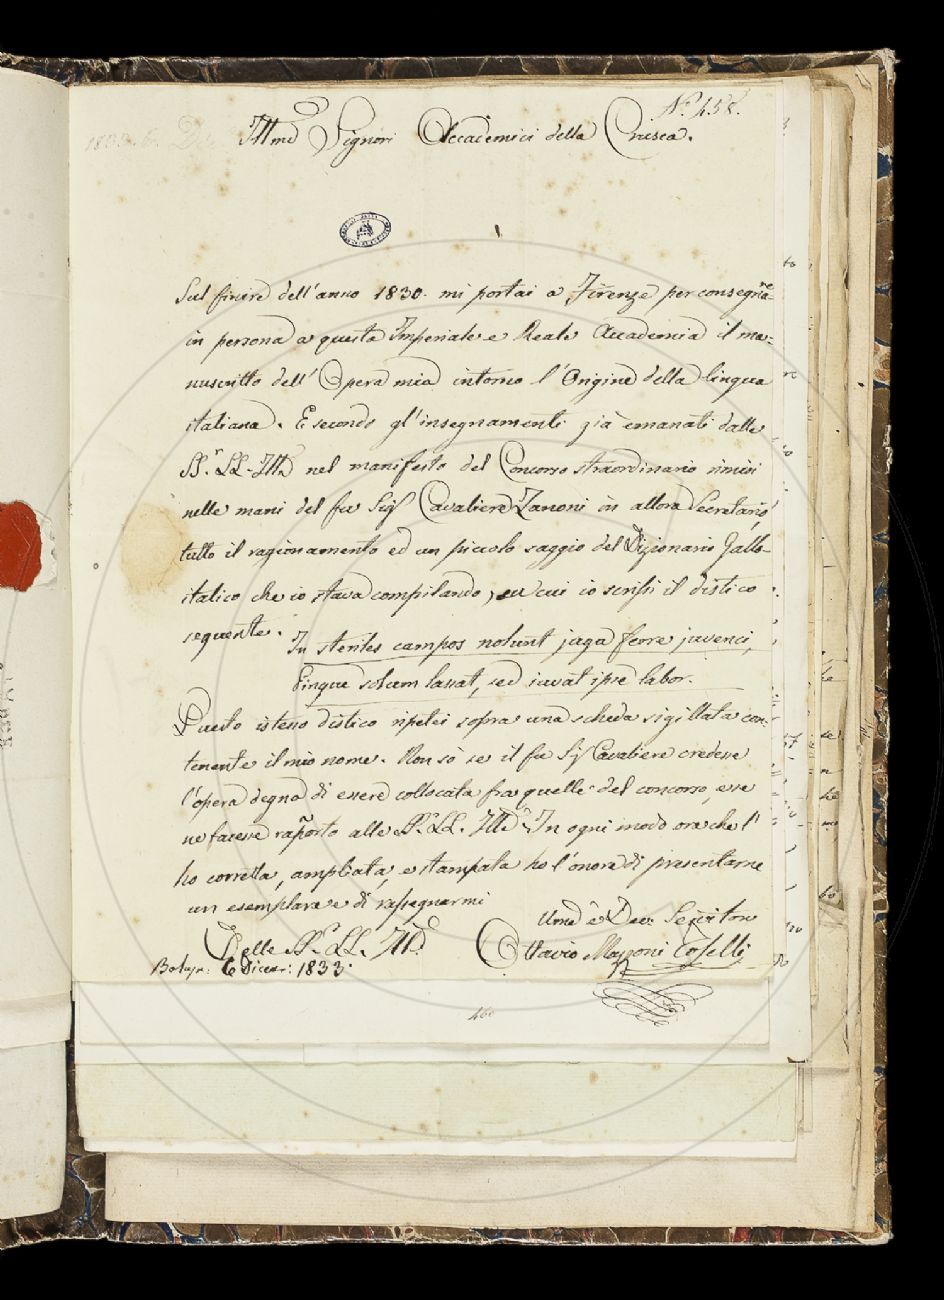 N.° 458.
Illmi Signori Accademici della Crusca.
Sul finire dell'anno 1830. mi portai a Firenze per consegnare
in persona a questa Imperiale e Reale Accademia il ma=
nuscritto dell'Opera mia intorno l'Origine della lingua
italiana. E secondo gl'insegnamenti già emanati dalle
SS.r LL. Ill. nel manifesto del Concorso straordinario rimisi
nelle mani del fu Sig. Cavaliere Zanoni in allora Secretario,
tutto il ragionamento ed un piccolo saggio del Dizionario Gallo-
italico che io stava compilando, su cui io scrissi il distico
seguente.
In steriles campos nolunt juga ferre juvenci,
Pingue solum lassat, sed iuvat ipse labor.
Questo istesso distico ripetei sopra una scheda sigillata con-
tenente il mio nome. Non sò se il fu Sig. Cavaliere credesse
l'opera degna di essere collocata fra quelle del concorso, e se
ne facesse rapporto alle SS.r LL. Ill. In ogni modo ora che l'
ho corretta, ampliata, e stampata ho l'onore di presentarne
un esemplare e di rassegnarmi
Delle SS.r LL. Ill.
Umo e Dev. Servitore
Ottavio Mazzoni Toselli
Bologn: 6 Dicem: 1833.
460